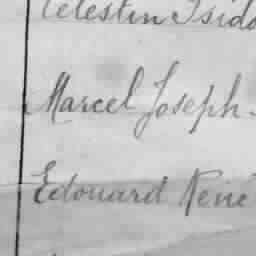 Célestin Isido
Marcel Joseph.
Edouard René